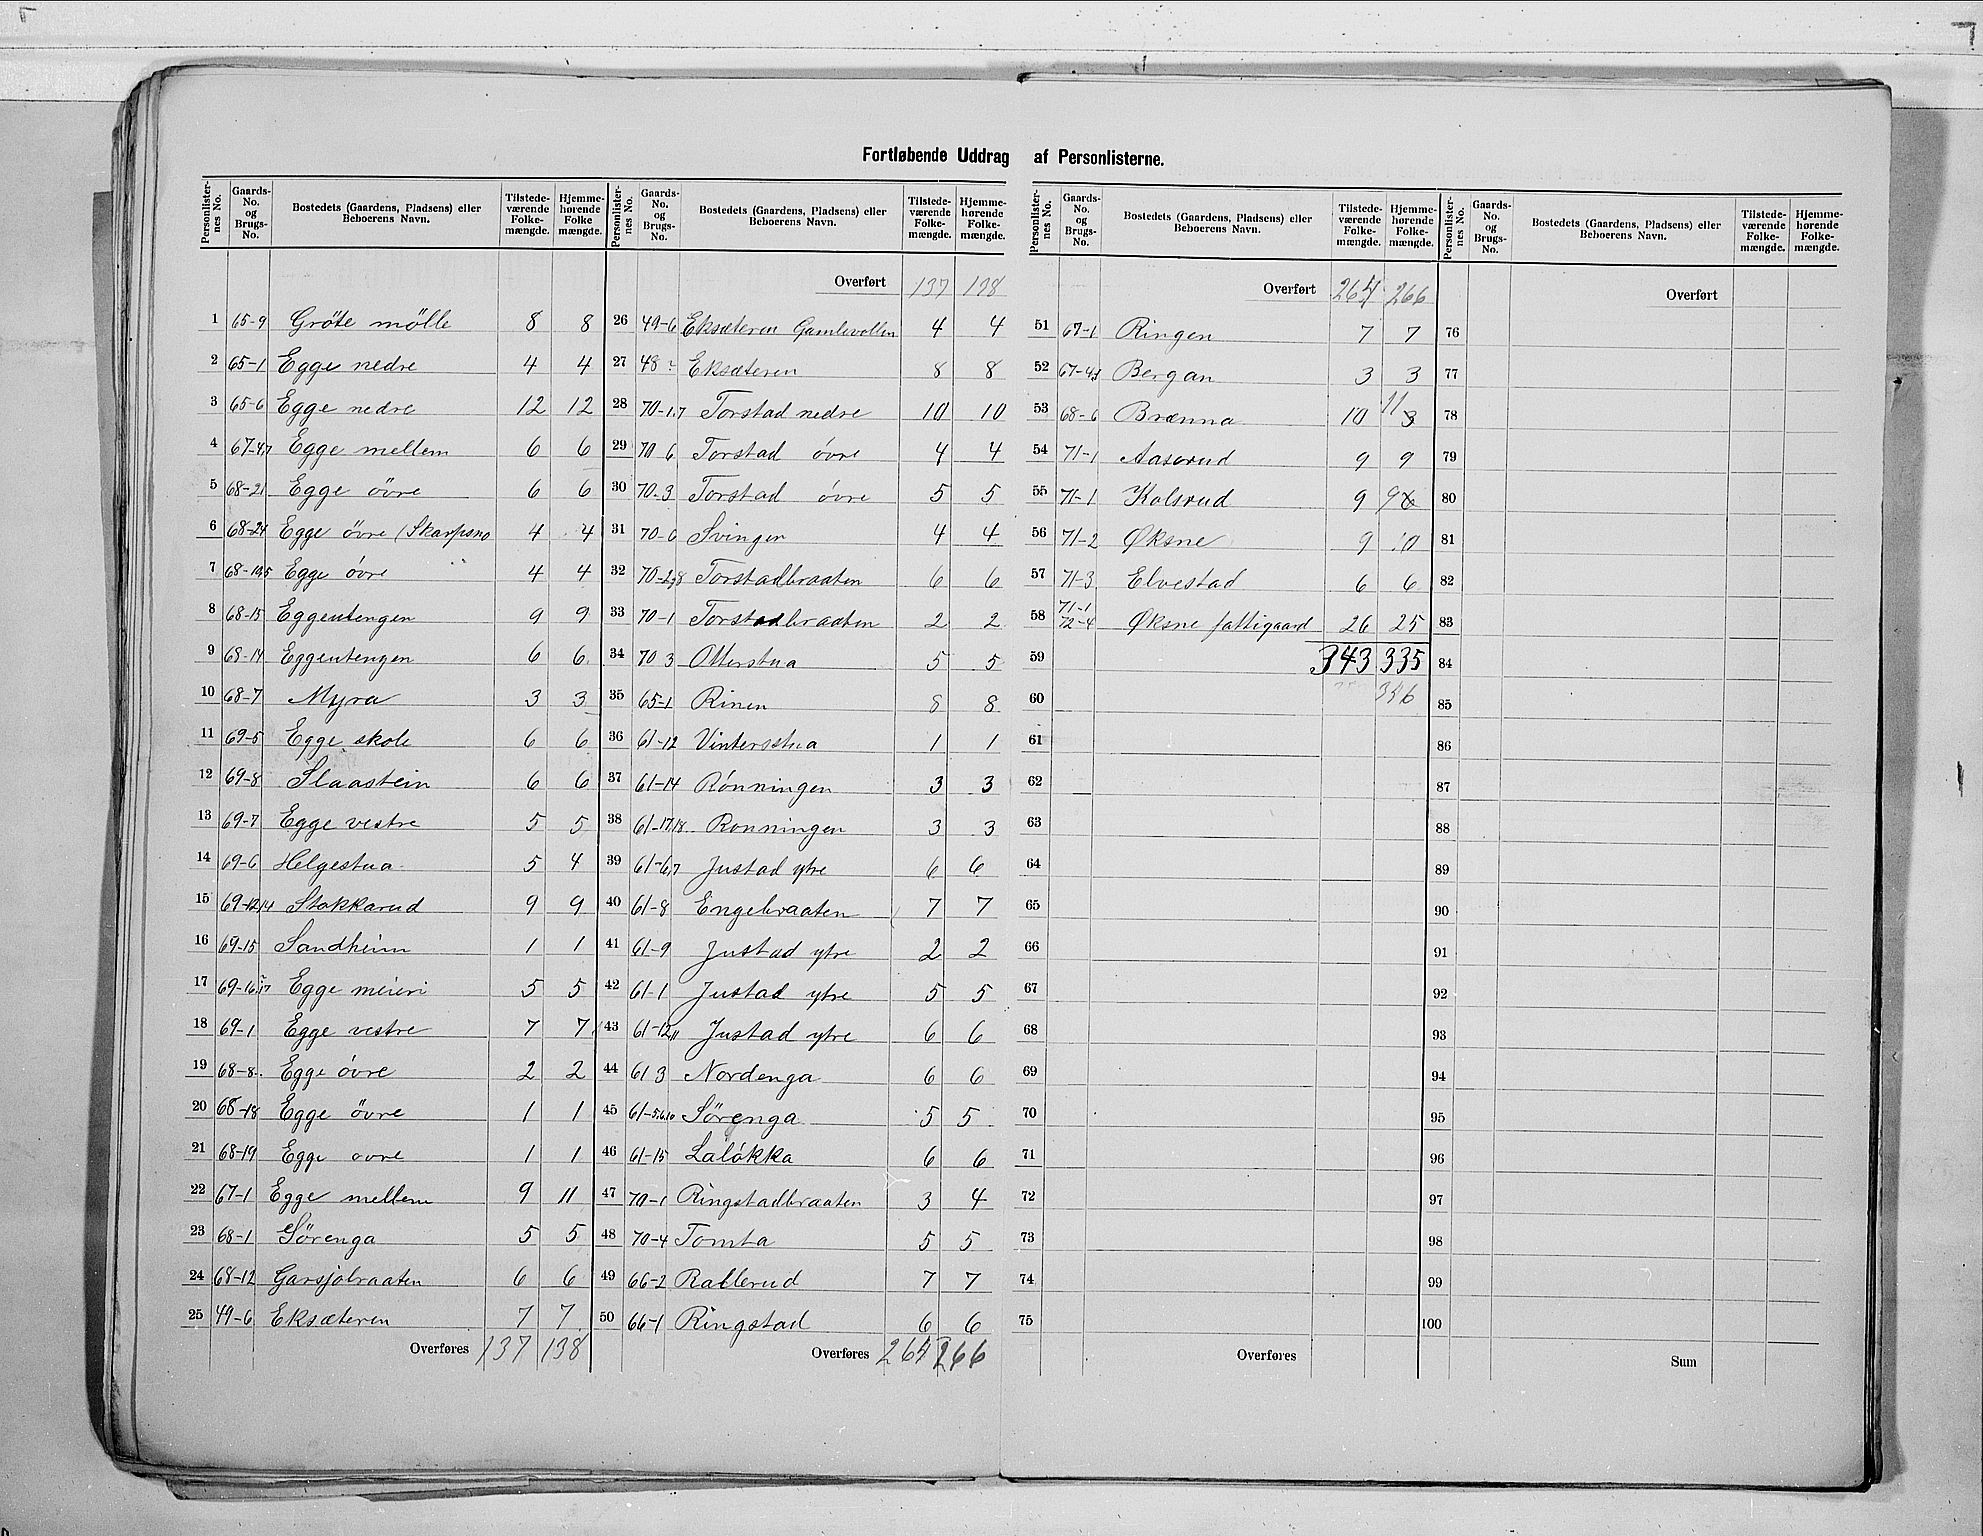 Fortløbende Uddrag af Personlisterne.
Personlister- nes No. | Gaards- No. og Brugs- No. | Bostedets (Gaardens, Pladsens) eller Beboerens Navn. | Tilstede- værende Folke- mængde. | Hjemme- hørende Folke mængde.
1 65-9 Gröte mölle 8 8
2 65-1 Egge nedre 4 4
3 65-6 Egge nedre 12 12
4 67-4,7 Egge mellem 6 6
5 68-21 Egge övre 6 6
6 68-24 Egge övre (Skarpsno 4 4
7 68-10,5 Egge övre 4 4
8 68-15 Eggeutengen 9 9
9 68-14 Eggeutengen 6 6
10 68-7 Myra 3 3
11 69-5 Egge skole 6 6
12 69-8 Slaastein 6 6
13 69-7 Egge vestre 5 5
14 69-6 Helgestua 5 4
15 69-12,14 Stokkarud 9 9
16 69-15 Sandheim 1 1
17 69-16,17 Egge meieri 5 5
18 69-1 Egge vestre 7 7
19 68-8 Egge övre 2 2
20 68-18 Egge övre 1 1
21 68-19 Egge ovre 1 1
22 67-1 Egge mellem 9 11
23 68-1 Sørenga 5 5
24 68-12 Garsjøbraaten 6 6
25 49-6 Eksæteren 7 7
Overføres 137 138
Personlister- nes No. | Gaards- No. og Brugs- No. | Bostedets (Gaardens, Pladsens) eller Beboerens Navn. | Tilstede- værende Folke- mængde. | Hjemme- hørende Folke- mængde.
Overført 137 138
26 49-6 Eksæteren Gamlevollen 4 4
27 48-? Eksæteren 8 8
28 70-1,7 Torstad nedre 10 10
29 70 6 Torstad övre 4 4
30 70-3 Torstad övre 5 5
31 70-6 Svingen 4 4
32 70-2,8 Torstadbraaten 6 6
33 70-1 Torstadbraaten 2 2
34 70 3 Otterstua 5 5
35 65-1 Rinen 8 8
36 61-12 Vintersstua 1 1
37 61-14 Rønningen 3 3
38 61-17,18 Ronningen 3 3
39 61-6,7 Justad ytre 6 6
40 61-8 Engebraaten 7 7
41 61-9 Justad ytre 2 2
42 61-1 Justad ytre 5 5
43 61-12,11 Justad ytre 6 6
44 61 3 Nordenga 6 6
45 61-5,6,10 Sörenga 5 5
46 61-15 Laløkka 6 6
47 70-1 Ringstadbraaten 3 4
48 70-4 Tomta 5 5
49 66-2 Rallerud 7 7
50 66-1 Ringstad 6 6
Overføres 264 266
Personlister- nes No. | Gaards- No. og Brugs- No. | Bostedets (Gaardens, Pladsens) eller Beboerens Navn. | Tilstede- værende Folke- mængde. | Hjemme- hørende Folke- mængde.
Overført 264 266
51 67-1 Ringen 7 7
52 67-4,7 Bergan 3 3
53 68-6 Brænna 10 11 3
54 71-1 Aaserud 9 9
55 71-1 Kolsrud 9 9
56 71-2 Øksne 9 10
57 71-3 Elvestad 6 6
58 71-1 72-4 Øksne fattigaard 26 25
59 343 335
60 346
61
62
63
64
65
66
67
68
69
70
71
72
73
74
75
Overføres
Personlister- nes No. | Gaards- No. og Brugs- No. | Bostedets (Gaardens, Pladsens) eller Beboerens Navn. | Tilstede- værende Folke- mængde. | Hjemme- hørende Folke- mængde.
Overført
76
77
78
79
80
81
82
83
84
85
86
87
88
89
90
91
92
93
94
95
96
97
98
99
100
Sum